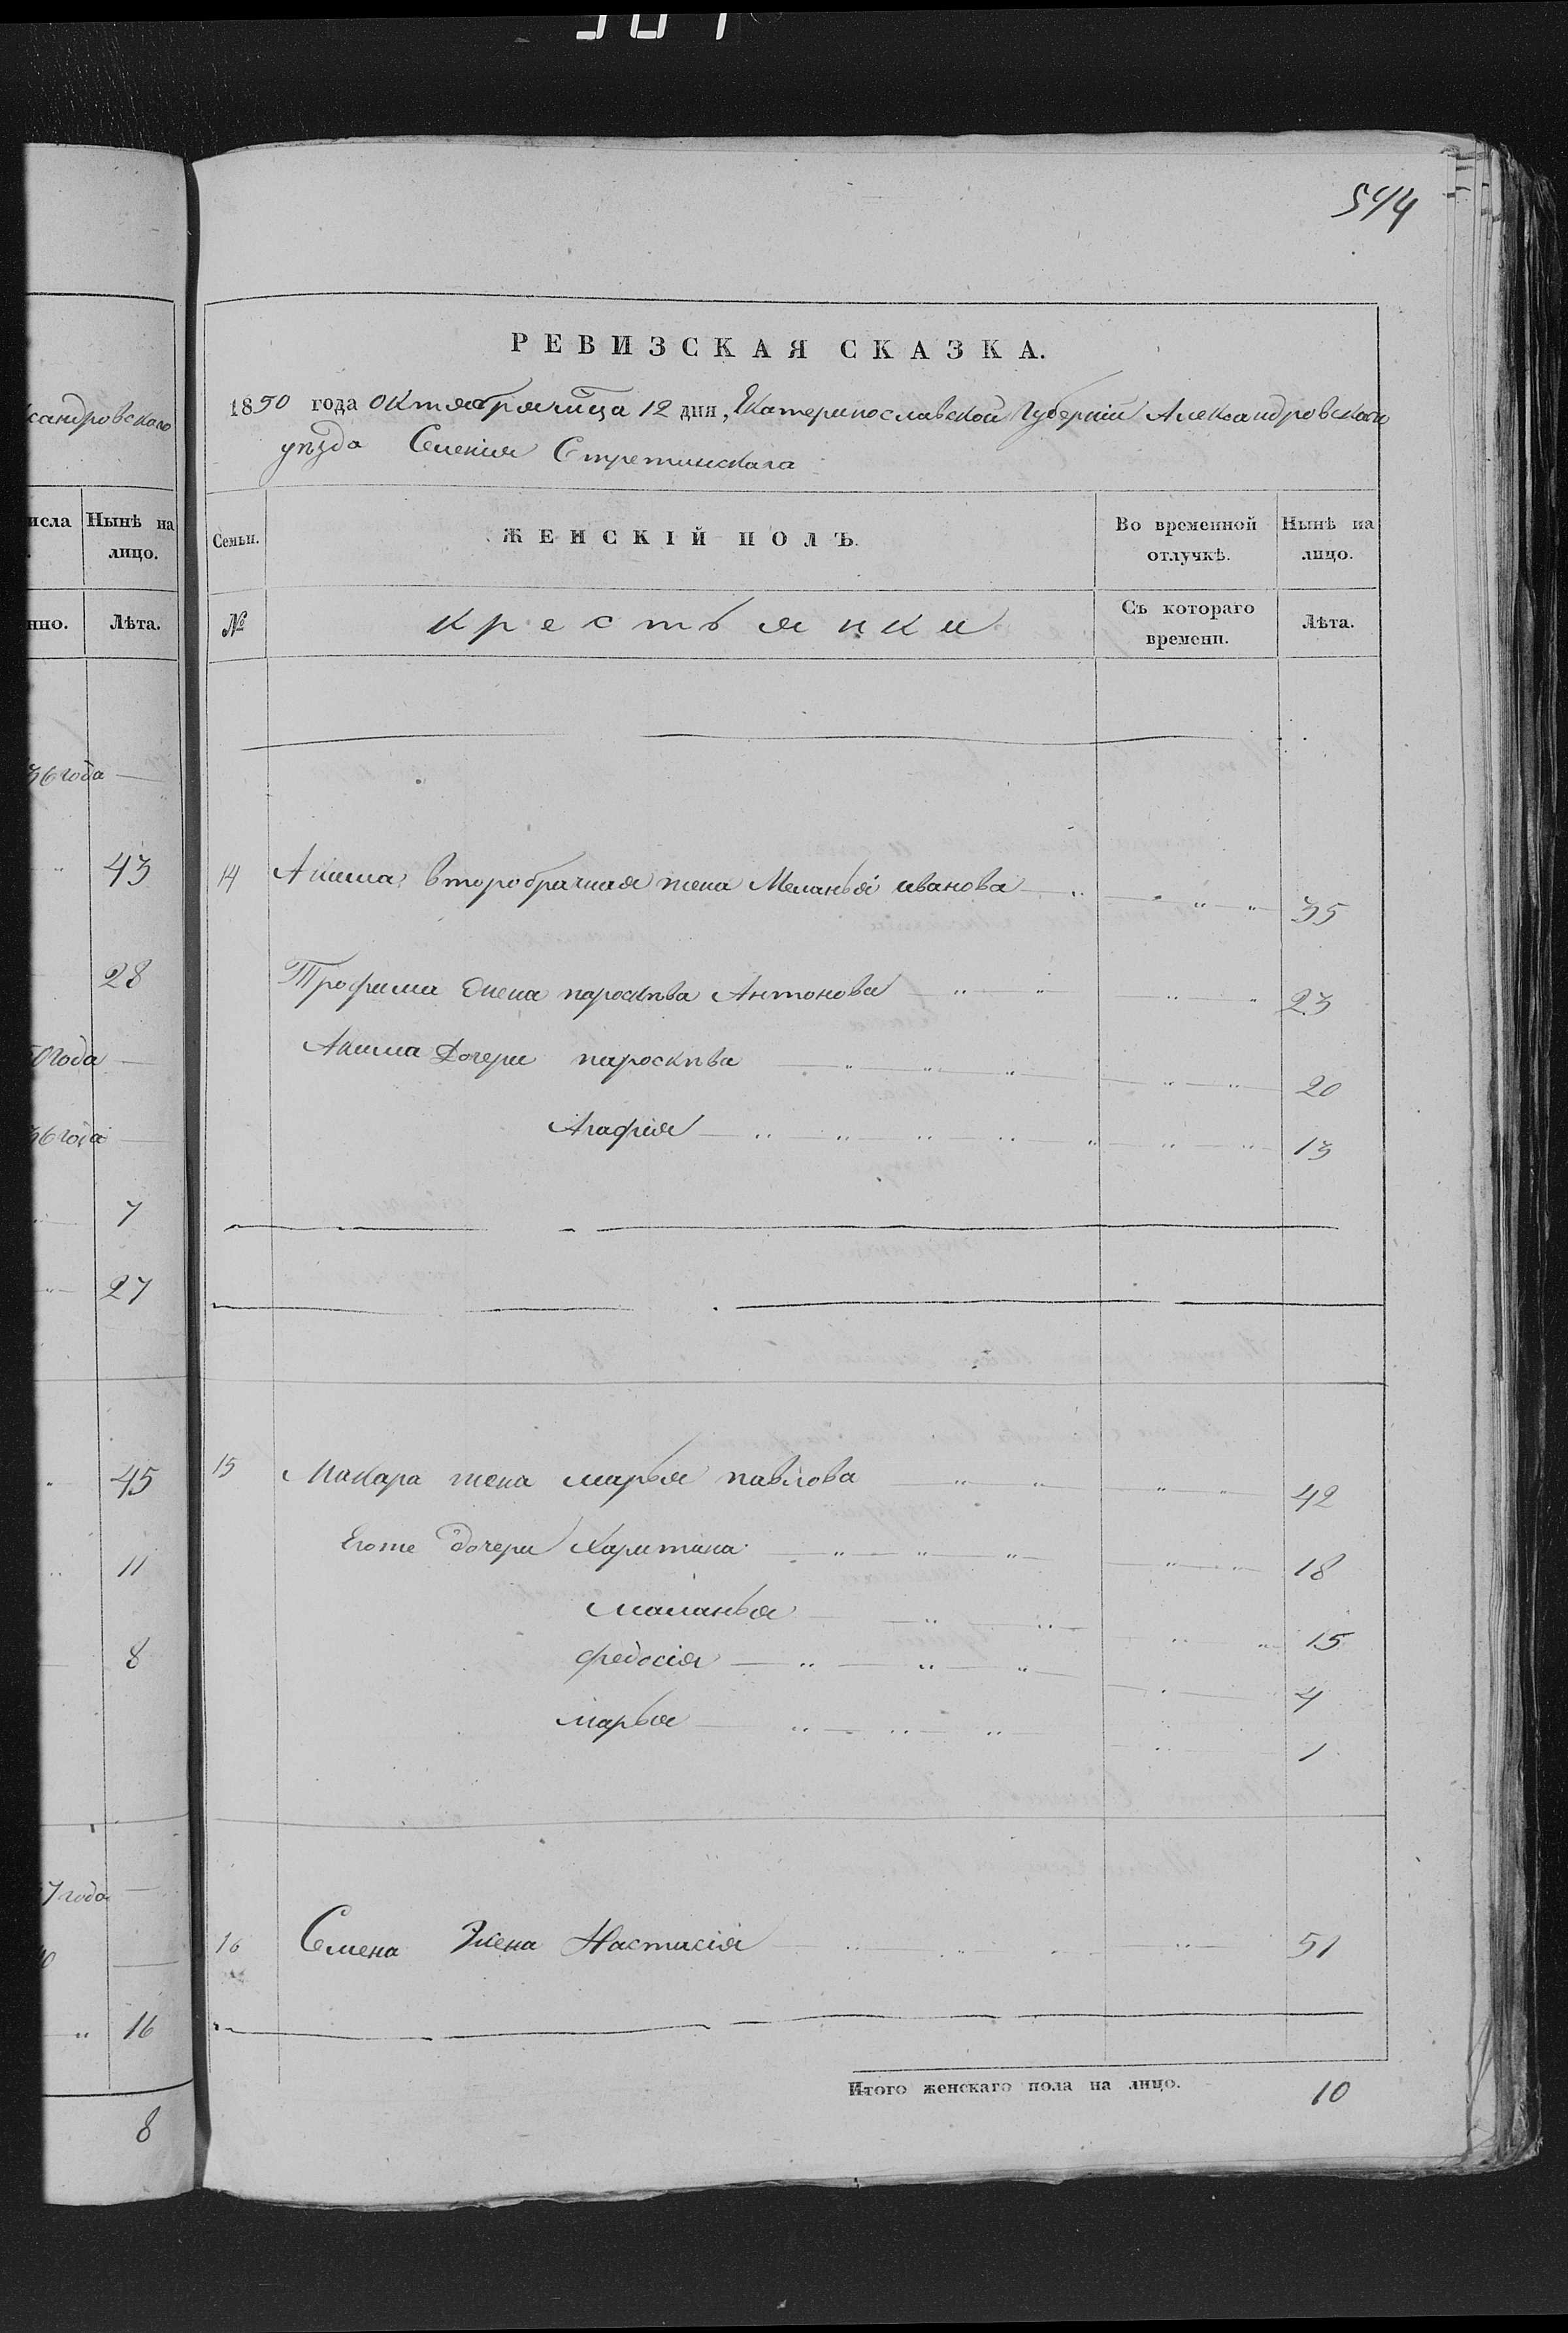 544
РЕВИЗСКАЯ СКАЗКА.
1850 года октября месяца 12 дня, Екатеринославской Губернии Александровского
уезда Селения Стретинскаго
Семьи. ЖЕНСКІЙ ПОЛЪ. Во временной отлучкѣ. Нынѣ на лицо.
№ крестьянки Съ котораго времени. Лѣта.
14 Акима второбрачная жена Меланья иванова 35
Трофима жена пароскева Антонова 23
Акима Дочери пароскева 20
Агафия 13
15 Макара жена марья павлова 42
Егоже дочери Харитина 18
Маланья 15
федосія 4
марья 1
16 Семена Жена Настасія 51
Итого женскаго пола на лицо. 10
ксандровского
исла Нынѣ на лицо.
нно. Лѣта.
36 года
43
28
50 года
36 года
7
27
45
11
8
7 года
16
8